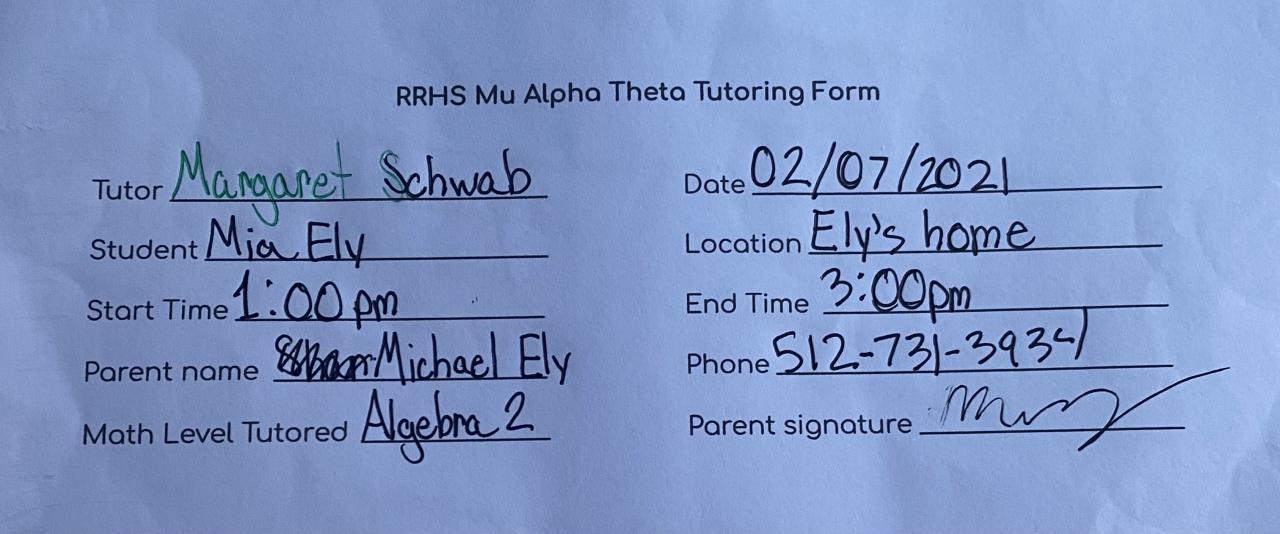 RRHS Mu Alpha Theta Tutoring Form
Tutor Margaret Schwab Date 02/07/2021
Student Mia Ely Location Ely's home
Start Time 1:00 pm End Time 3:00pm
Parent name Michael Ely Phone 512-731-3934
Math Level Tutored Algebra 2 Parent signature